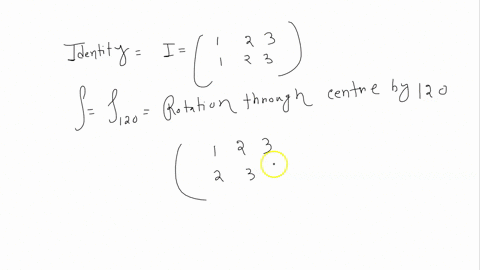 Identity = I = ( 1 2 3
1 2 3 )
ρ = ρ120 = Rotation through centre by 120
( 1 2 3
2 3